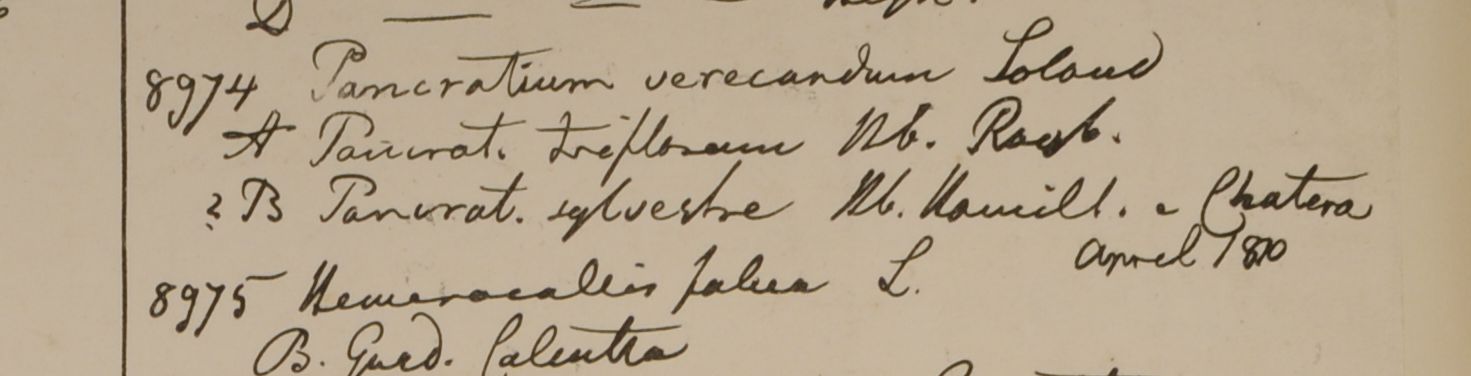 D
8974 Pancratium verecundum Soland
A Pancrat. triflorum Hb. Roxb.
? B Pancrat. sylvestre Hb. Hamill. e Chatera
April 1810
8975 Hemerocallis fulva L.
B. Gard. Calcutta